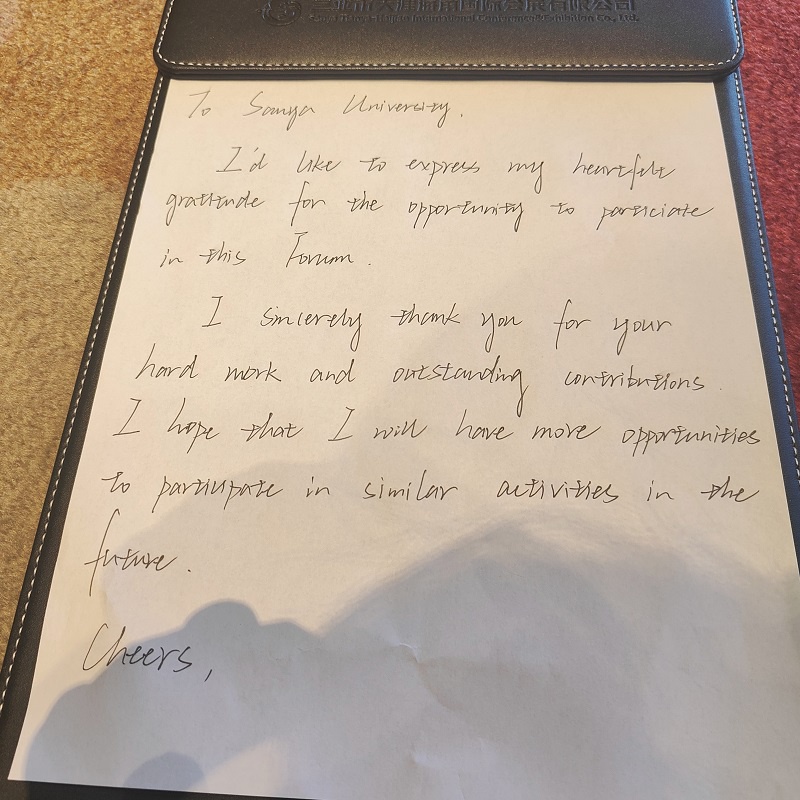 国际会展有限公司
International Convention & Exhibition Co., Ltd.
To Sanya University.
I'd like to express my heartfelt
gratitude for the opportunity to particiate
in this Forum.
I sincerely thank you for your
hard work and outstanding contributions.
I hope that I will have more opportunities
to participate in similar activities in the
future.
Cheers,